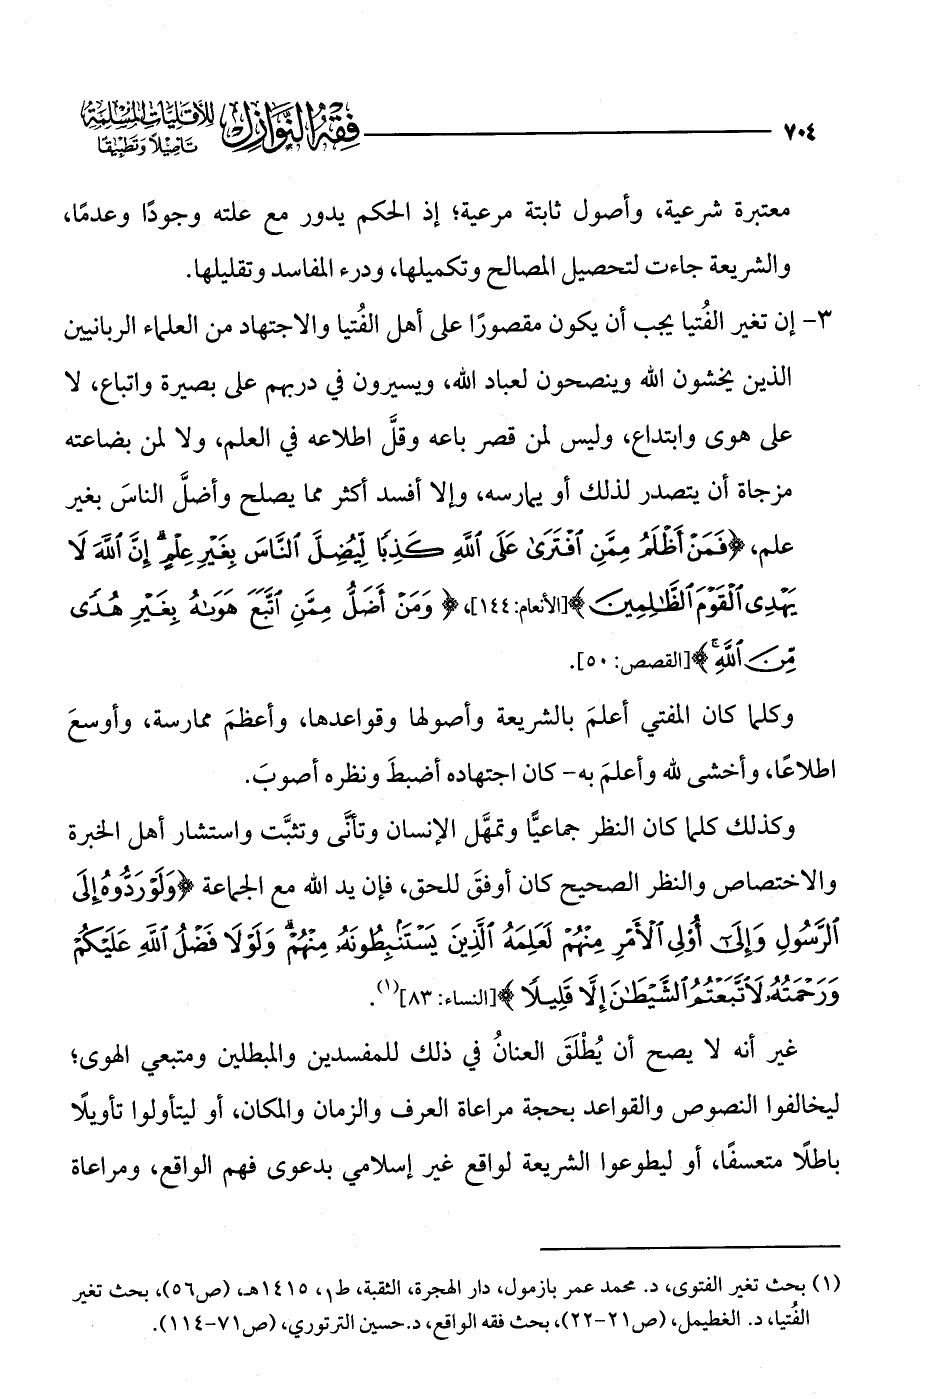 ٧٠٤
فقه النوازل للأقليات المسلمة
تأصيلًا وتطبيقًا
معتبرة شرعية، وأصول ثابتة مرعية؛ إذ الحكم يدور مع علته وجودًا وعدمًا،
والشريعة جاءت لتحصيل المصالح وتكميلها، ودرء المفاسد وتقليلها.
٣- إن تغير الفُتيا يجب أن يكون مقصورًا على أهل الفُتيا والاجتهاد من العلماء الربانيين
الذين يخشون الله وينصحون لعباد الله، ويسيرون في دربهم على بصيرة واتباع، لا
على هوى وابتداع، وليس لمن قصر باعه وقلَّ اطلاعه في العلم، ولا لمن بضاعته
مزجاة أن يتصدر لذلك أو يمارسه، وإلا أفسد أكثر مما يصلح وأضلَّ الناسَ بغير
علم، ﴿فَمَنْ أَظْلَمُ مِمَّنِ ٱفْتَرَىٰ عَلَى ٱللَّهِ كَذِبًا لِّيُضِلَّ ٱلنَّاسَ بِغَيْرِ عِلْمٍ ۗ إِنَّ ٱللَّهَ لَا
يَهْدِى ٱلْقَوْمَ ٱلظَّٰلِمِينَ﴾ [الأنعام: ١٤٤]، ﴿وَمَنْ أَضَلُّ مِمَّنِ ٱتَّبَعَ هَوَىٰهُ بِغَيْرِ هُدًى
مِّنَ ٱللَّهِ ۚ﴾ [القصص: ٥٠].
وكلما كان المفتي أعلمَ بالشريعة وأصولها وقواعدها، وأعظمَ ممارسة، وأوسعَ
اطلاعًا، وأخشى لله وأعلمَ به- كان اجتهاده أضبطَ ونظره أصوبَ.
وكذلك كلما كان النظر جماعيًّا وتمهَّل الإنسان وتأنَّى وتثبَّت واستشار أهل الخبرة
والاختصاص والنظر الصحيح كان أوفقَ للحق، فإن يد الله مع الجماعة ﴿وَلَوْ رَدُّوهُ إِلَى
ٱلرَّسُولِ وَإِلَىٰٓ أُو۟لِى ٱلْأَمْرِ مِنْهُمْ لَعَلِمَهُ ٱلَّذِينَ يَسْتَنۢبِطُونَهُۥ مِنْهُمْ ۗ وَلَوْلَا فَضْلُ ٱللَّهِ عَلَيْكُمْ
وَرَحْمَتُهُۥ لَٱتَّبَعْتُمُ ٱلشَّيْطَٰنَ إِلَّا قَلِيلًا﴾ [النساء: ٨٣](١).
غير أنه لا يصح أن يُطْلَقَ العنانُ في ذلك للمفسدين والمبطلين ومتبعي الهوى؛
ليخالفوا النصوص والقواعد بحجة مراعاة العرف والزمان والمكان، أو ليتأولوا تأويلًا
باطلًا متعسفًا، أو ليطوعوا الشريعة لواقع غير إسلامي بدعوى فهم الواقع، ومراعاة
(١) بحث تغير الفتوى، د. محمد عمر بازمول، دار الهجرة، الثقبة، ط١، ١٤١٥هـ، (ص٥٦)، بحث تغير
الفُتيا، د. الغطيمل، (ص٢١-٢٢)، بحث فقه الواقع، د.حسين الترتوري، (ص٧١-١١٤).